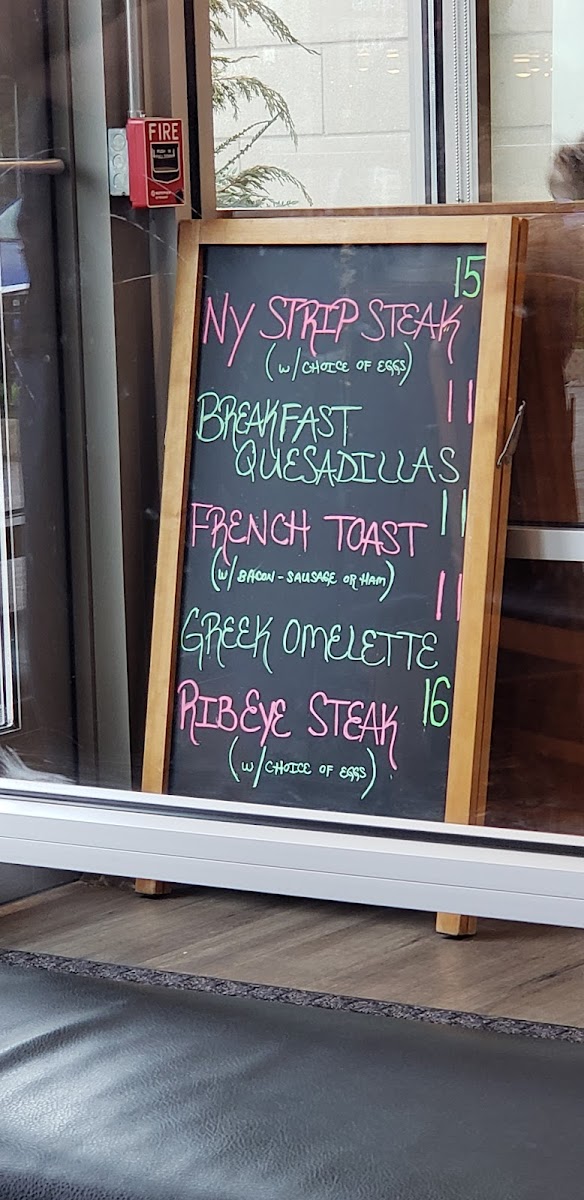 FIRE
15
NY STRIP STEAK
(W/ CHOICE OF EGGS)
11
BREAKFAST
QUESADILLAS
11
FRENCH TOAST
(W/ BACON - SAUSAGE OR HAM)
11
GREEK OMELETTE
16
RIBEYE STEAK
(W/ CHOICE OF EGGS)